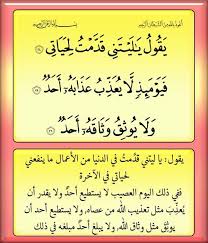 يَقُولُ يَٰلَيْتَنِى قَدَّمْتُ لِحَيَاتِى ٢٤
فَيَوْمَئِذٍ لَّا يُعَذِّبُ عَذَابَهُۥٓ أَحَدٌ ٢٥
وَلَا يُوثِقُ وَثَاقَهُۥٓ أَحَدٌ ٢٦
يقول: يا ليتني قدَّمتُ في الدنيا من الأعمال ما ينفعني
لحياتي في الآخرة
ففي ذلك اليوم العصيب لا يستطيع أحدٌ ولا يقدر أن
يُعذِّبَ مثل تعذيب الله من عصاه, ولا يستطيع أحد أن
يوثِقَ مثل وثاق الله, ولا يبلغ أحدٌ مبلغه في ذلك